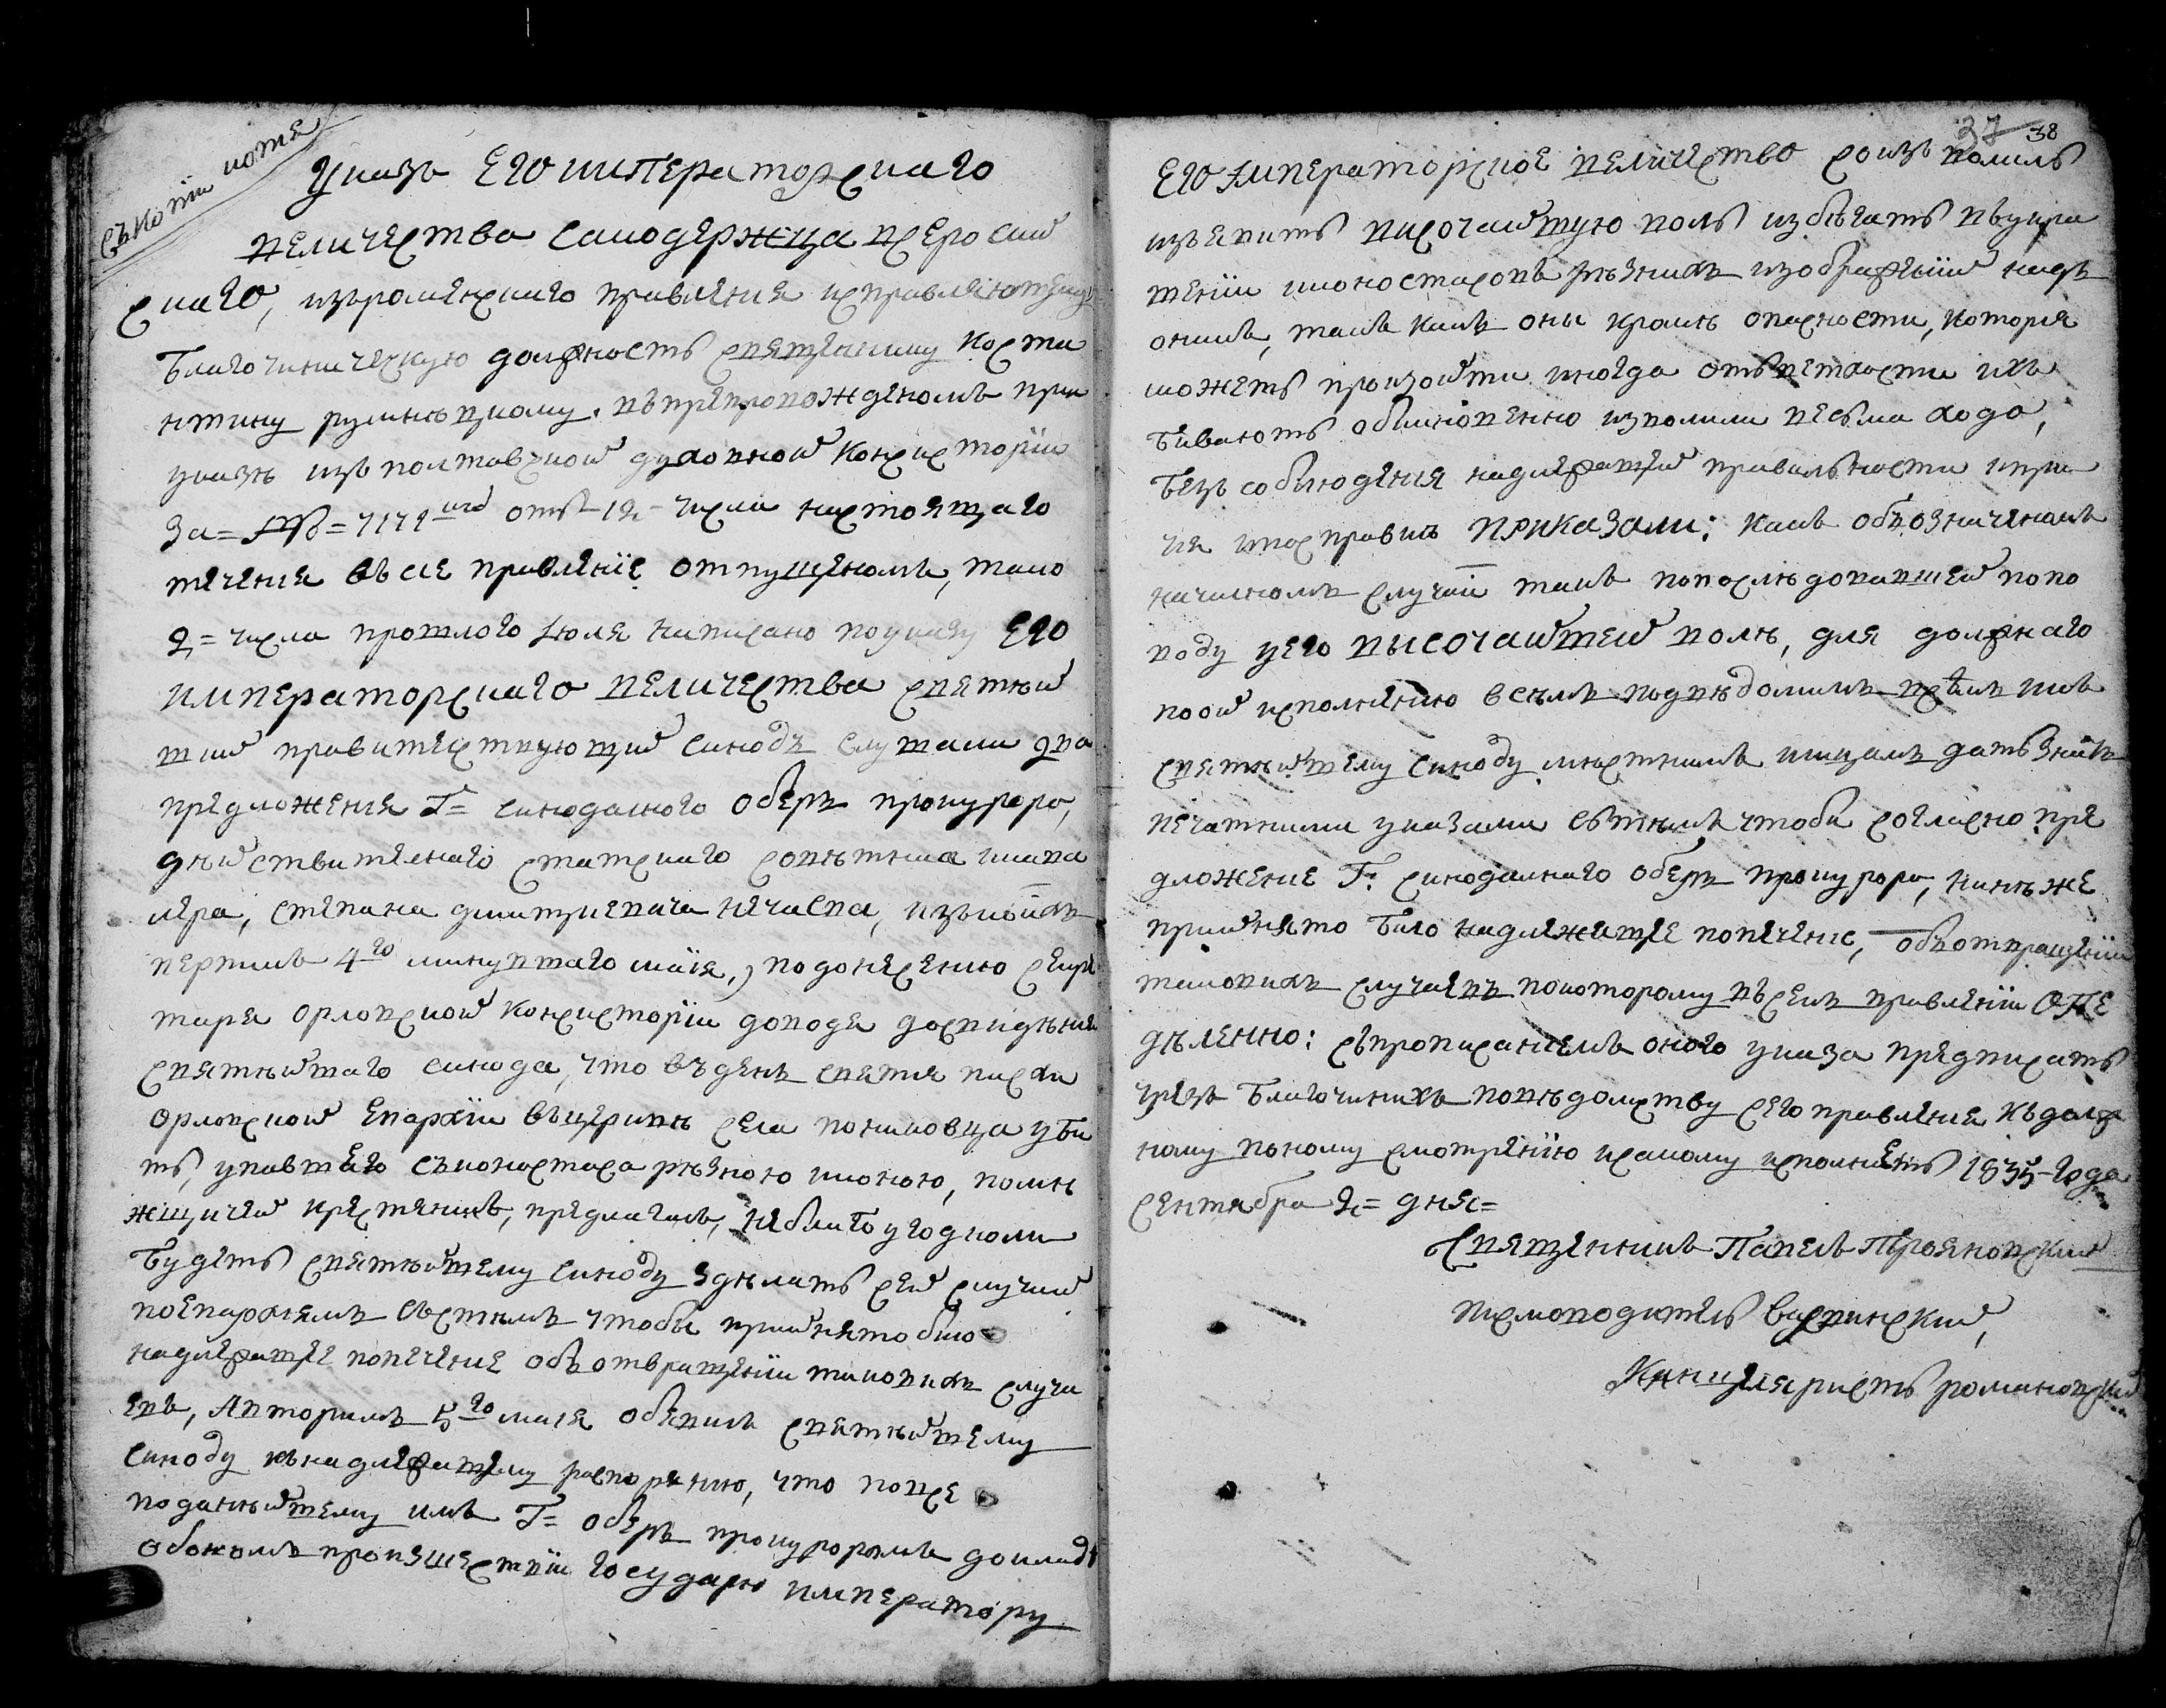 съ копіи копія
Указъ Его императорскаго
величества самодержца всеросий
скаго, изъ роменскаго правленія исправляющему
благочиническую должность священнику Конста
нтину румнѣвцкому. въ препровожденомъ при
указѣ изъ полтавской духовной Консисторіи
за= №= 7179 отъ 12 числа настоящаго
теченія въ сіе правленіе отпущеномъ, тако
2= числа прошлого Іюля написано по указу Его
императорскаго величества святѣй
шій правительствующій синодъ слушали два
предложенія Г= синодалного оберъ прокурора,
дѣйствителнаго статскаго совѣтника и кава
лера, степана дмитриевича нечаева, изъ коихъ
первимъ 4го минувшаго маія, по донесению секре
таря орловской консисторіи доводя до свидѣнія
святѣйшаго синода, что въ день святія пасхи
орловской епархіи въ церквѣ села покиловца уби
тъ, упавшаго съ иконостаса рѣзною иконою, полѣ
жщичей крестянинъ, предлагалъ, не благоугодноли
будетъ святѣйшему синоду здѣлать сей случай
по епархіямъ съ тѣмъ чтобы прийнято било
надлежащее попеченіе объ отвращеніи таковихъ случа
евъ, А вторимъ 5го маія обявилъ святѣйшему
синоду къ надлежащему распорению, что по все
поданѣйшему имъ Г= оберъ прокуроромъ докладѣ
обономъ произшествіи государю императору
37 38
Его Императорское величество соизволилъ
изъявить височайшую волю избѣгать въ укра
шеніи иконостасовъ рѣзнихъ изображеній надъ
онимъ, такъ какъ они кромѣ опасности, которая
можетъ произойти иногда отъ ветхости ихъ
бываютъ обикновенно изполнени весьма худо,
безъ соблюденія надлежащей правильности и при
чія и по справкѣ приказали: какъ объ означеномъ
начальномъ случаи такъ и о послѣдовавшей по по
воду у его высочайшей волѣ, для должнаго
по ой исполненію всѣмъ подвѣдомимъ
святѣйшему синоду мѣстнимъ и лицамъ дать знать
печатними указами съ тѣмъ чтоби согласно пре
дложение Г: синодалнаго оберъ прокурора, нинѣ же
прийнято било надлежащее попеченіе, объ отвращеніи
таковихъ случаевъ по которому въ семъ правленіи опре
дѣленно: съ прописаніемъ оного указа предписать
чрезъ благочинихъ по вѣдомству сего правленія къ долж
ному по ному смотренію и самому исполненію 1835-года
сентября 2= дня=
Священникъ Павелъ
писмоводитель
Канцеляристъ романовский